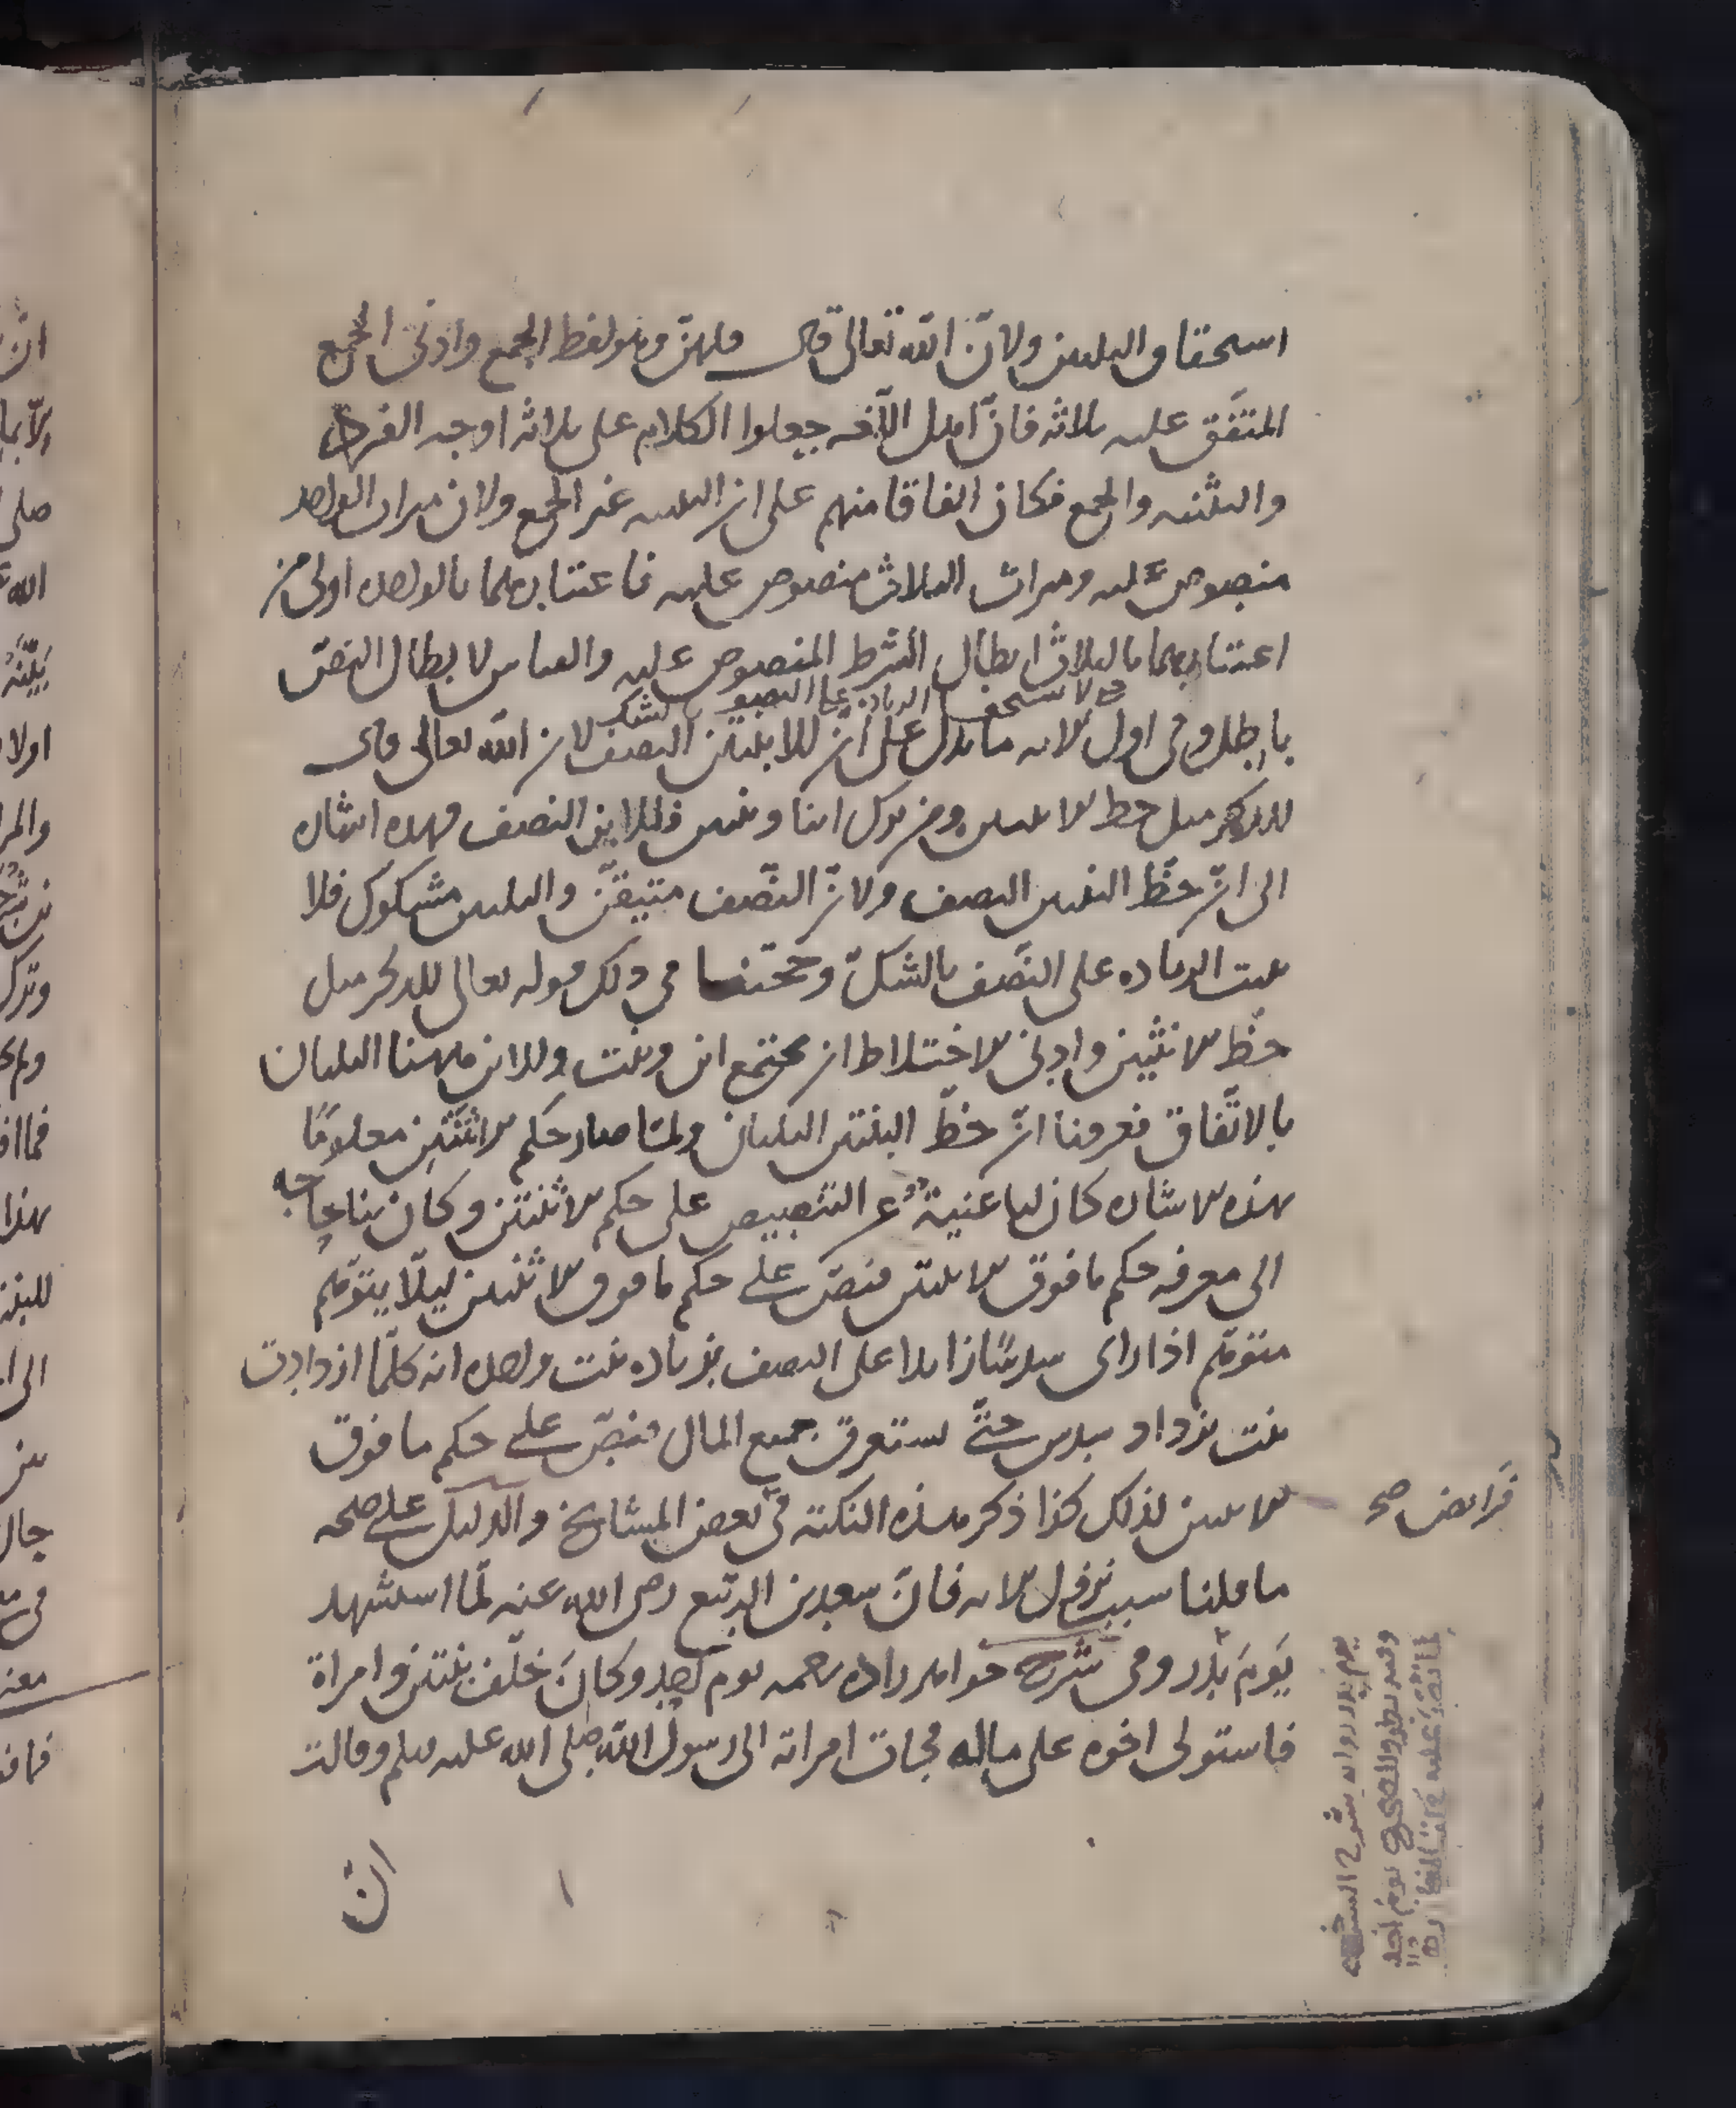 استحقاق الثلثين ولانّ الله تعالى قال فلهنّ وهو لفظ الجمع وادنى الجمع
المتّفق عليه ثلاثة فانّ اهل اللغة جعلوا الكلام على ثلاثة اوجه الفرد
والتثنية والجمع فكان اتفاقا منهم على ان التثنية غير الجمع ولان ميراث الواحدة
منصوص عليه وميراث الثلاث منصوص عليه فاعتبارهما بالواحدة اولى من
اعتبارهما بالثلاث ابطال الشرط المنصوص عليه والقياس لابطال النصّ
باطل وفي اول الاية ما يدل على انّ للابنتين النصف لان الله تعالى قال
للذكر مثل حظ الانثيين ومن ترك ابنا وبنتين فللابن النصف فهذه اشارة
الى انّ حظّ البنتين النصف ولانّ النصّف متيقّن والثلثين مشكوك فلا
يثبت الزيادة على النصّف بالشكّ وحجّتنا في ذلك قوله تعالى للذكر مثل
حظّ الانثيين وادنى الاختلاط ان يجتمع ابن وبنت وللابن ههنا الثلثان
بالاتّفاق فعرفنا انّ حظّ البنتين الثلثان ولمّا صار حكم الانثتين معلومًا
بهذه الاشارة كان لها غنية عن التنصيص على حكم الاثنتين وكان بنا حاجة
الى معرفة حكم ما فوق الاثنتين فنصّ على حكم ما فوق الاثنتين ليلّا يتوّهم
متوّهم اذا راى سدسًا زايدا على النصف بزيادة بنت واحدة انه كلّما ازدادت
بنت يزداد سدس حتّى يستغرق جميع المال فنصّ على حكم ما فوق
الاثنتين لذلك كذا ذكر هذه النكتة في بعض المشايخ والدليل على صحة
فرايض صح
ما قلنا سبب نزول الاية فانّ سعد بن الربيع رضي الله عنه لمّا استشهد
يوم بدر وفي شرح خواهر زاده رحمه يوم احد وكان خلّف بنتين وامراة
فاستولى اخوه على ماله فجات امراته الى رسول الله صلى الله عليه وسلم وقالت
انّ